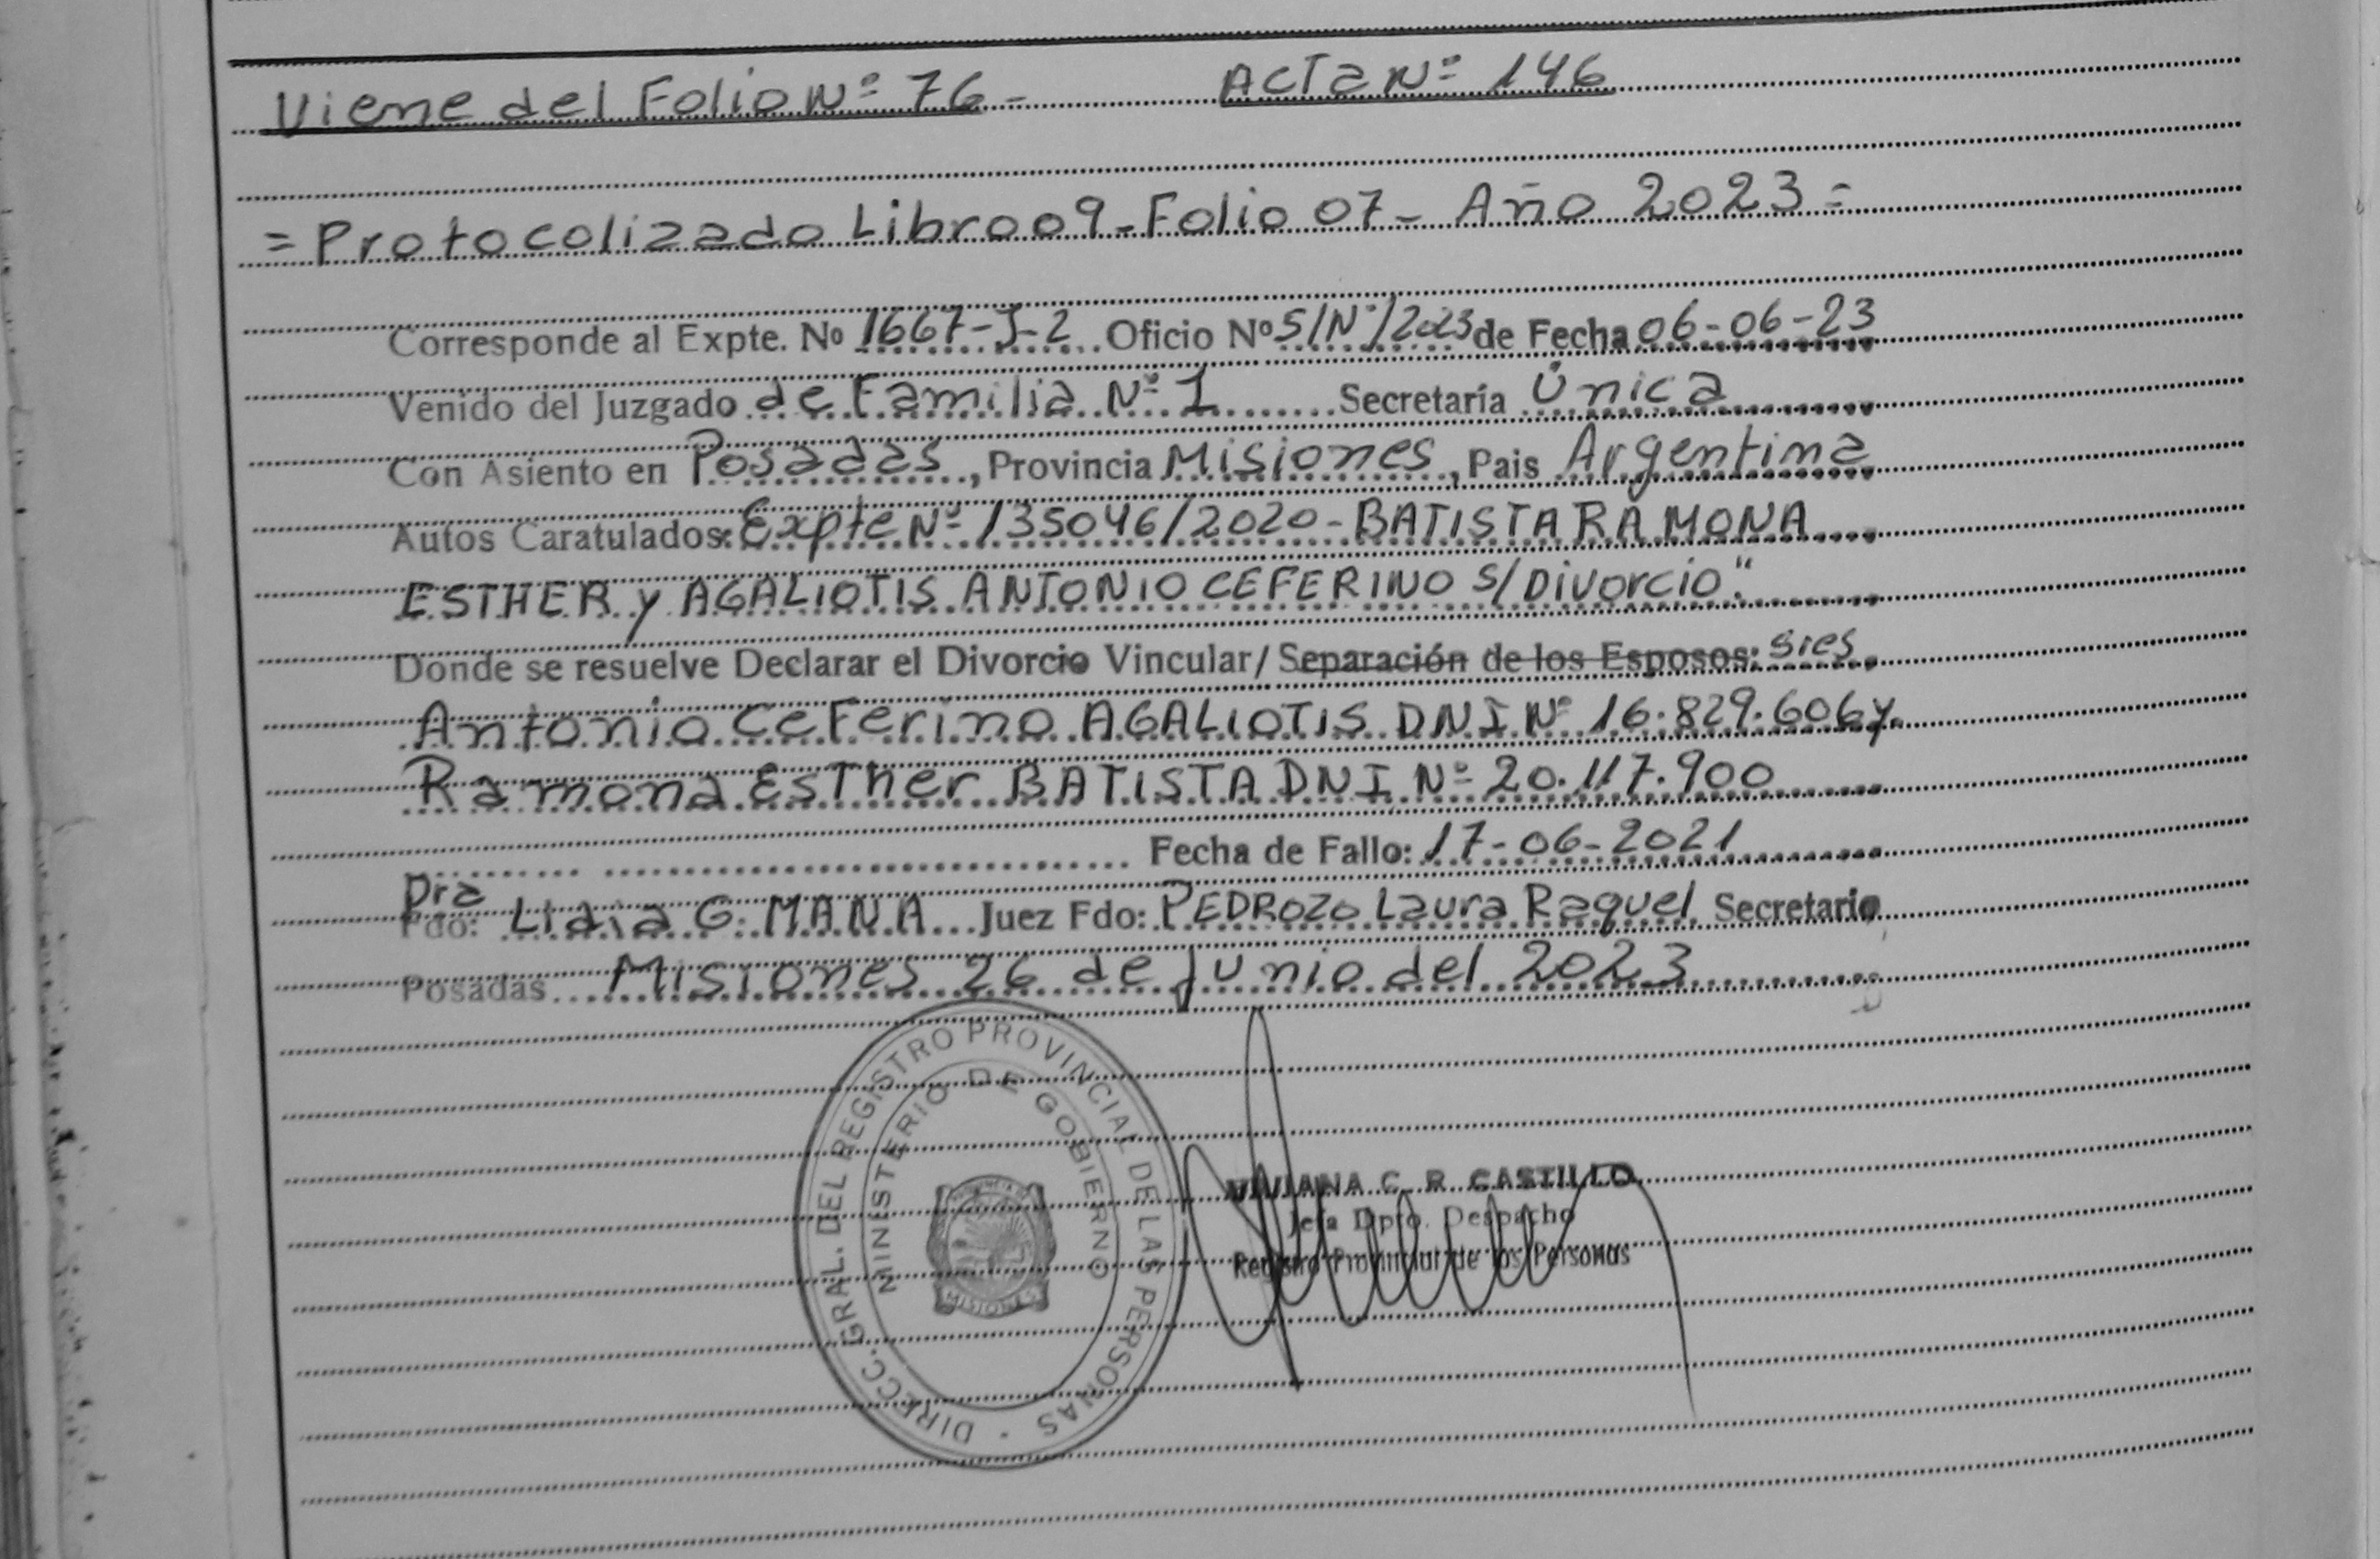 Viene del Folio Nº 76 - ACTA Nº 146
= Protocolizado Libro 09 - Folio 07 - Año 2023 =
Corresponde al Expte. Nº 1667-J-2 Oficio Nº S/Nº/2023 de Fecha 06-06-23
Venido del Juzgado de Familia Nº 1 Secretaría Única
Con Asiento en Posadas, Provincia Misiones, Pais Argentina
Autos Caratulados: Expte Nº 135046/2020 - BATISTA RAMONA
ESTHER y AGALIOTIS ANTONIO CEFERINO S/Divorcio"
Donde se resuelve Declarar el Divorcio Vincular/ Separación de los Esposos: sres
Antonio Ceferino AGALIOTIS DNI Nº 16.829.606 y
Ramona Esther BATISTA DNI Nº 20.117.900
Fecha de Fallo: 17-06-2021
Dra
Fdo: Lidia G. MANA Juez Fdo: PEDROZO Laura Raquel Secretario
Posadas Misiones 26 de junio del 2023
DIRECC. GRAL. DEL REGISTRO PROVINCIAL DE LAS PERSONAS
MINISTERIO DE GOBIERNO
MISIONES
VIVIANA C. R. CASTILLO
Jefa Dpto. Despacho
Registro Provincial de las Personas